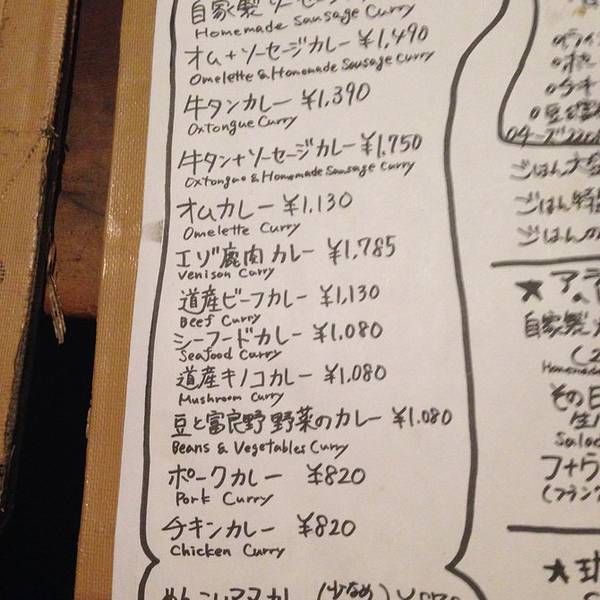 自家製ソーセージカレー
Homemade Sausage Curry
オム+ソーセージカレー ¥1,490
Omelette & Homemade Sausage Curry
牛タンカレー ¥1,390
OxTongue Curry
牛タン+ソーセージカレー ¥1,750
Oxtongue & Homemade Sausage Curry
オムカレー ¥1,130
Omelette Curry
エゾ鹿肉カレー ¥1,785
Venison Curry
道産ビーフカレー ¥1,130
Beef Curry
シーフードカレー ¥1,080
Seafood Curry
道産キノコカレー ¥1,080
Mushroom Curry
豆と富良野野菜のカレー ¥1,080
Beans & Vegetables Curry
ポークカレー ¥820
Pork Curry
チキンカレー ¥820
Chicken Curry
(少なめ)
ごはん大
ごはん特
ごはんの
★ア
自家製
Homemade
その日
Salad
フラ
(フランク
★